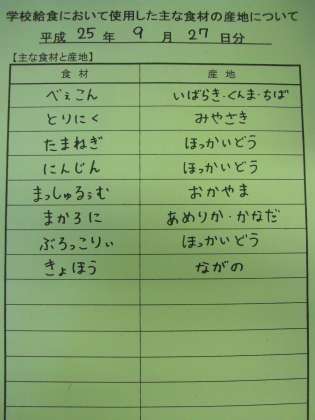 学校給食において使用した主な食材の産地について
平成 25 年 9 月 27 日分
【主な食材と産地】
食材 産地
べぇこん いばらき・ぐんま・ちば
とりにく みやざき
たまねぎ ほっかいどう
にんじん ほっかいどう
まっしゅるぅむ おかやま
まかろに あめりか・かなだ
ぶろっこりぃ ほっかいどう
きょほう ながの